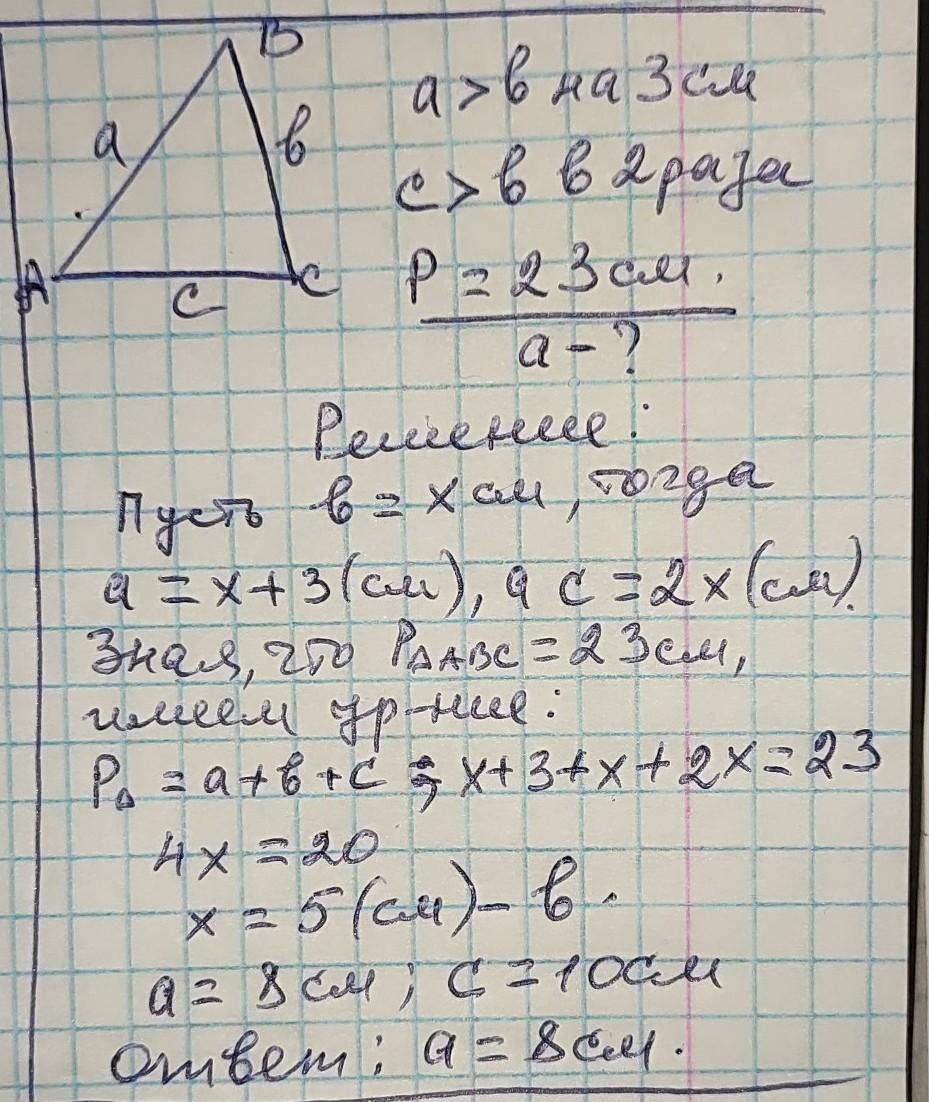 B
a
в
A
c
C
a > в на 3 см
c > в в 2 раза
P = 23 см.
a - ?
Решение:
Пусть в = x см, тогда
a = x + 3 (см), а c = 2x (см).
Зная, что P△ABC = 23 см,
имеем ур-ние:
P△ = a + в + c ; x + 3 + x + 2x = 23
4x = 20
x = 5 (см) - в.
a = 8 см ; c = 10 см
Ответ : a = 8 см.